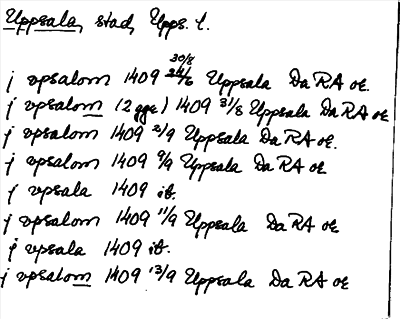 Uppsala, stad, Upps. l.
30/8
j vpsalom 1409 Uppsala Da RA or.
j vpsalom (2 ggr) 1409 31/8 Uppsala Da RA or
j vpsalom 1409 2/9 Uppsala Da RA or.
j vpsalom 1409 9/9 Uppsala Da RA or
j vpsala 1409 ib.
j vpsalom 1409 11/9 Uppsala Da RA or
j vpsala 1409 ib.
j vpsalom 1409 13/9 Uppsala Da RA or